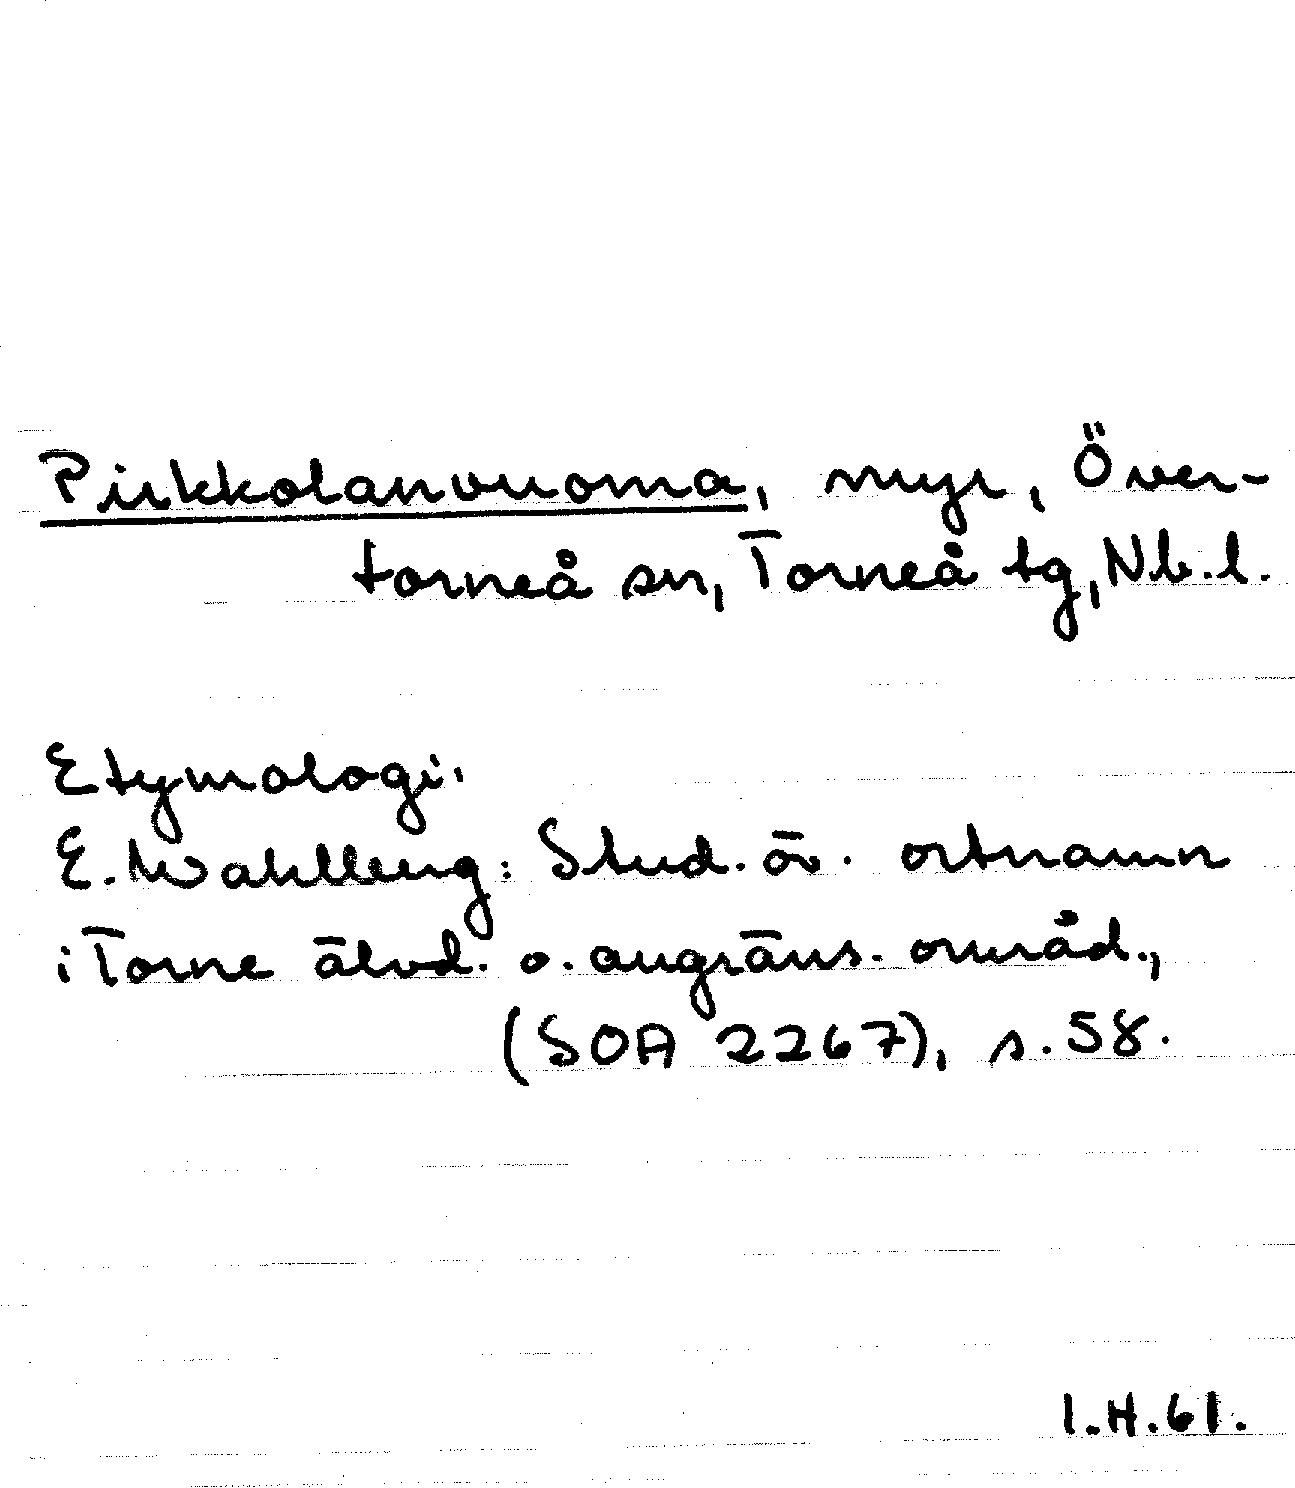 Pirkkolanvuoma, myr, Över-
torneå sn, Torneå tg, Nb.l.
Etymologi.
E. Wahlberg: Stud. öv. ortnamn
i Torne älvd. o. angräns. områd.,
(SOA 2267), s. 58.
I.H.61.